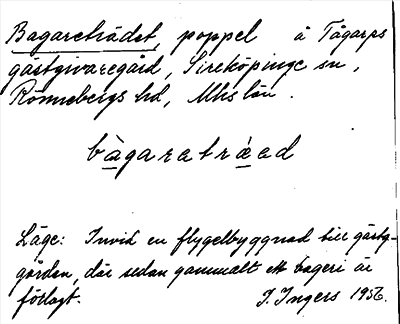 Bagareträdet, poppel å Tågarps
gästgivaregård, Sireköpinge sn,
Rönnebergs hd, Mhs län.
bàgaretrǽəd
Läge: Invid en flygelbyggnad till gästg-
gården, där sedan gammalt ett bageri är
förlagt. I. Ingers 1956.